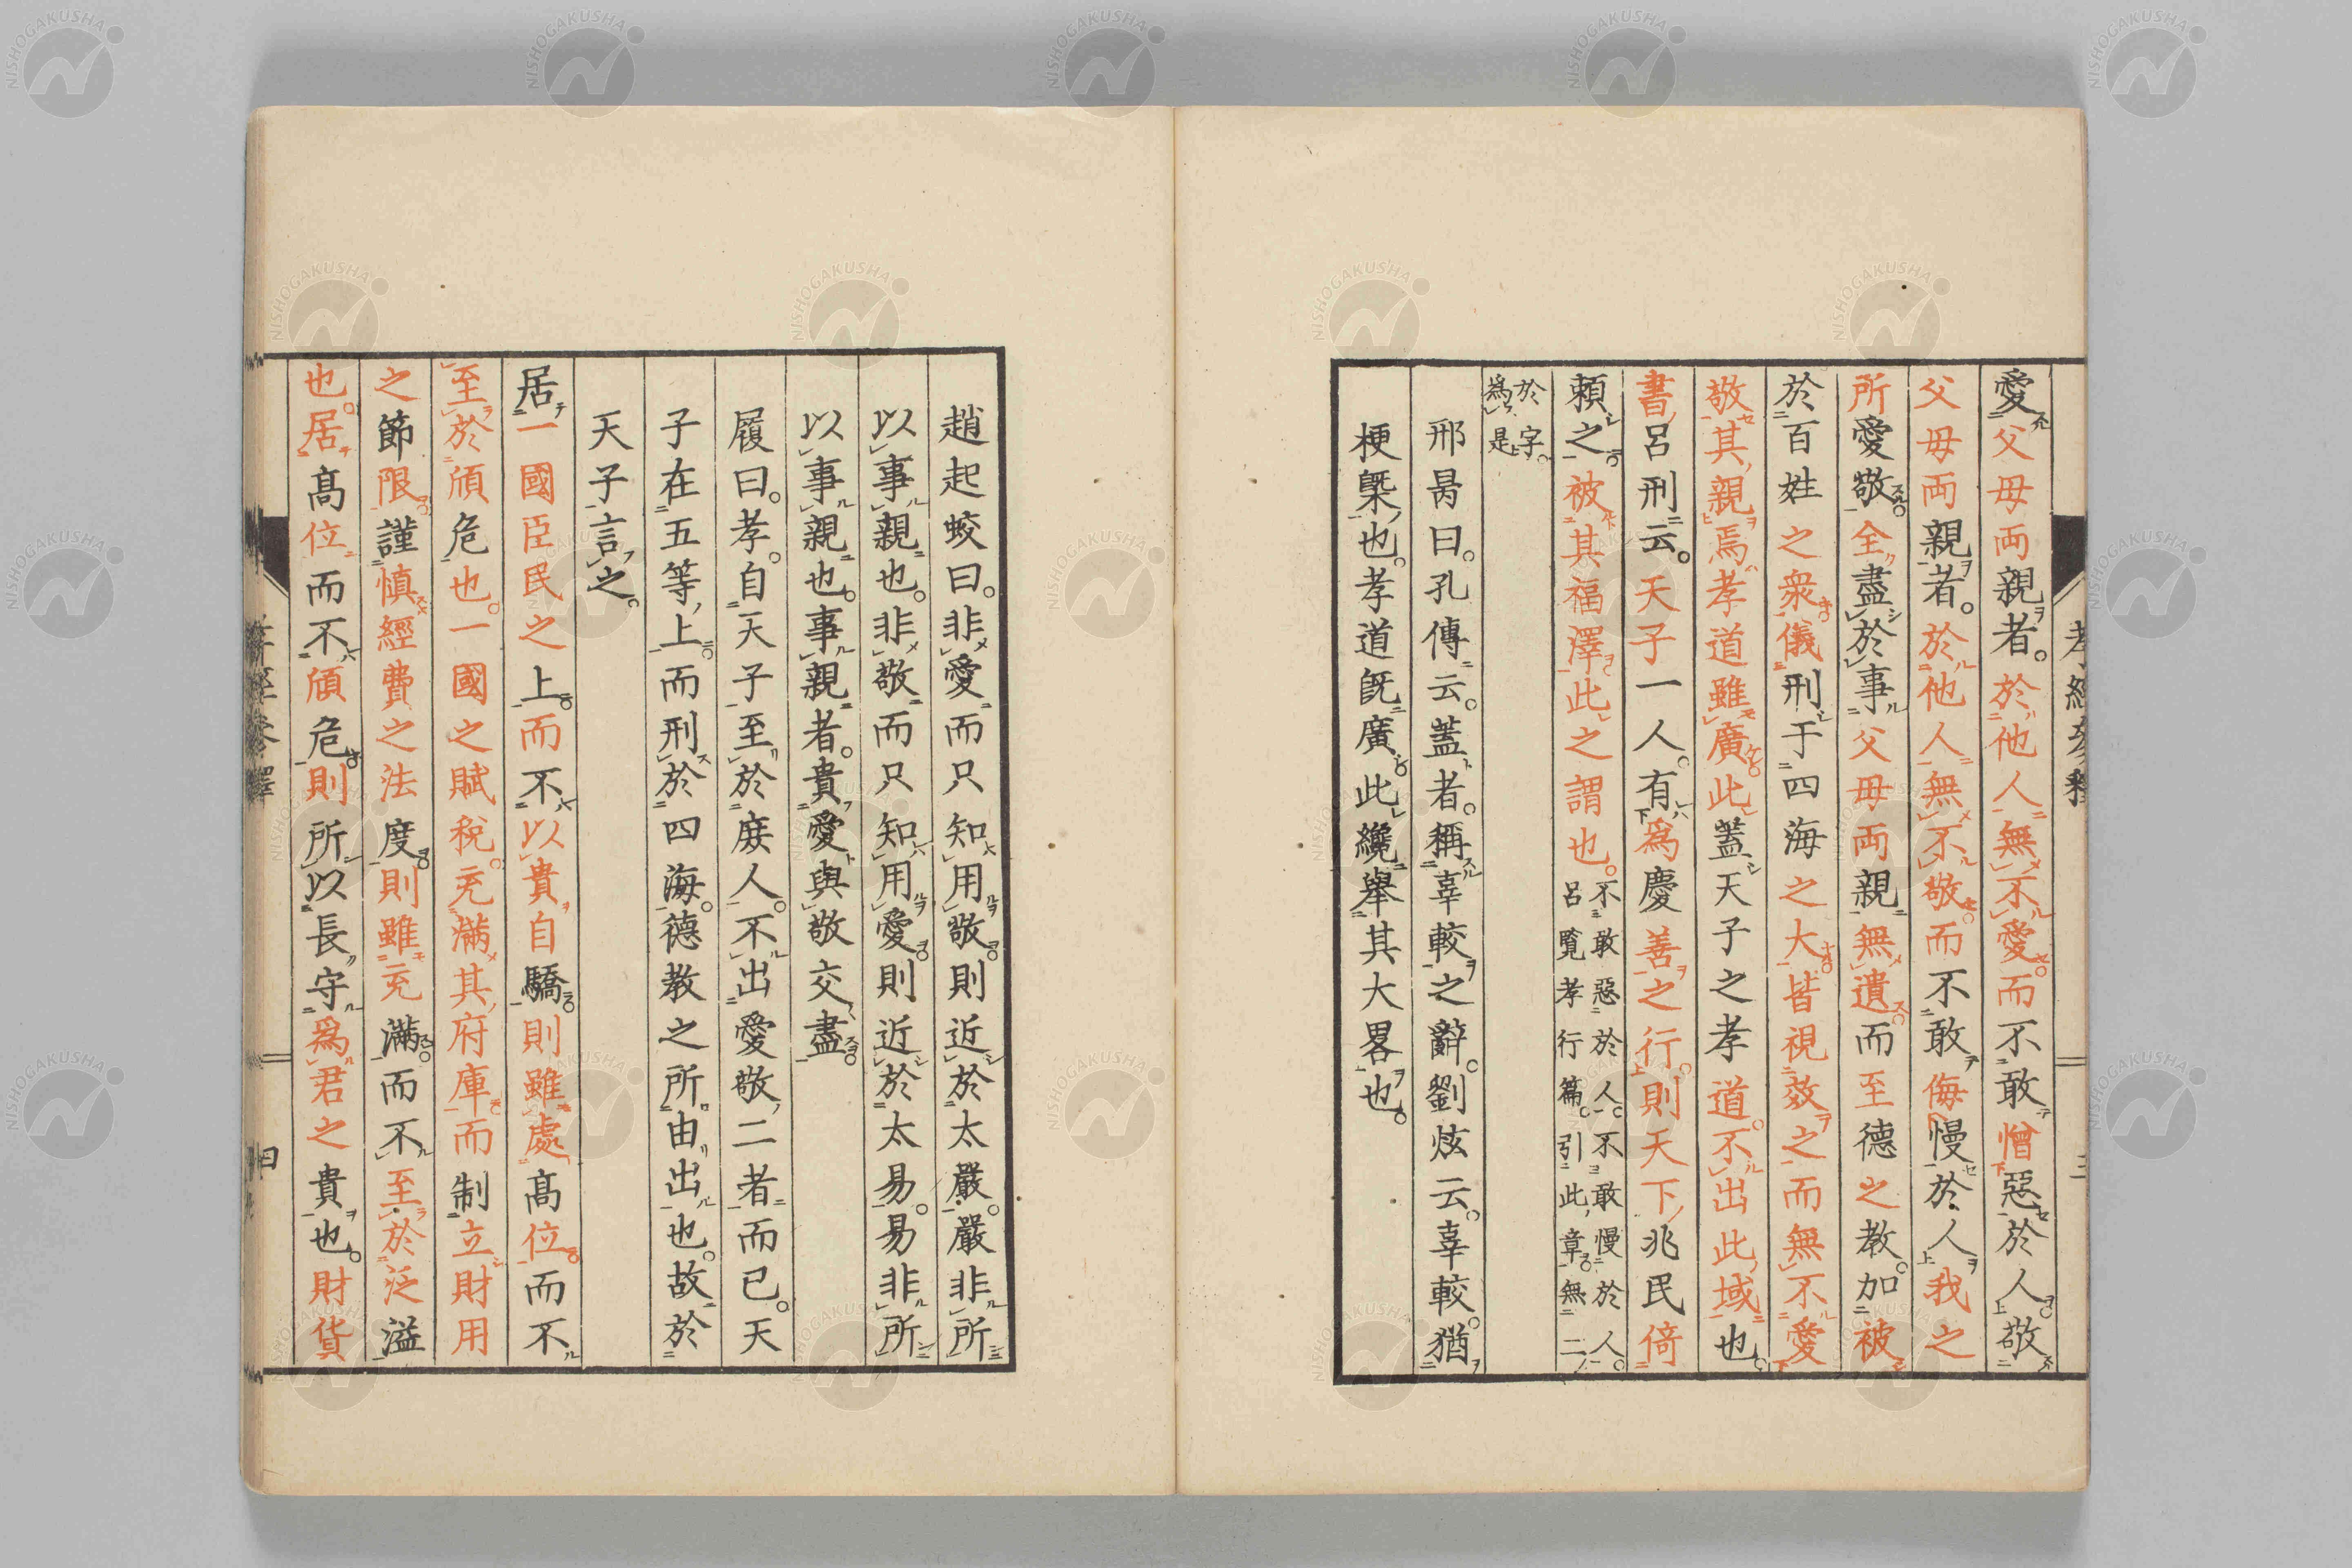 孝經彖釋 三
愛父母両親者。於他人無不愛而不敢憎惡於人敬
父母両親者。於他人無不敬而不敢侮慢於人我之
所愛敬。全盡於事父母両親無遺而至德之教。加被
於百姓之衆儀刑于四海之大皆視效之而無不愛
敬其親焉孝道雖廣此蓋天子之孝道。不出此域也
書呂刑云。天子一人。有爲慶善之行。則天下兆民倚
頼之。被其福澤此之謂也。不敢惡於人。不敢慢於人。
呂覧孝行篇。引此章。無二
於字。
爲是
邢昺曰。孔傳云。蓋者。稱辜較之辭。劉炫云。辜較。猶
梗槩也。孝道既廣。此纔舉其大畧也。
趙起蛟曰。非愛而只知用敬。則近於太嚴。嚴非所
以事親也。非敬而只知用愛。則近於太易。易非所
以事親也。事親者。貴愛與敬交盡。
履曰。孝。自天子至於庻人。不出愛敬二者而已。天
子在五等上。而刑於四海。德教之所由出也。故於
天子言之。
居一國臣民之上。而不以貴自驕。則雖處髙位。而不
至於頎危也。一國之賦税。充滿其府庫而制立財用
之節限。謹慎經費之法度。則雖充滿。而不至於泛溢
也。居髙位而不頎危。則所以長守爲君之貴也。財貨
孝經彖釋 四